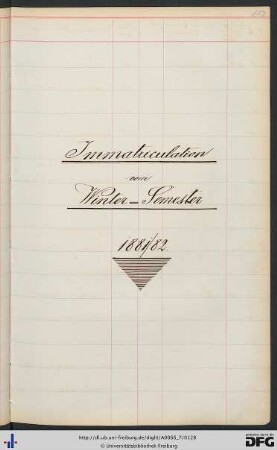 Immatriculation
vom
Winter-Semester
1881/82
http://dl.ub.uni-freiburg.de/diglit/A0066_7/0128
© Universitätsbibliothek Freiburg
DFG